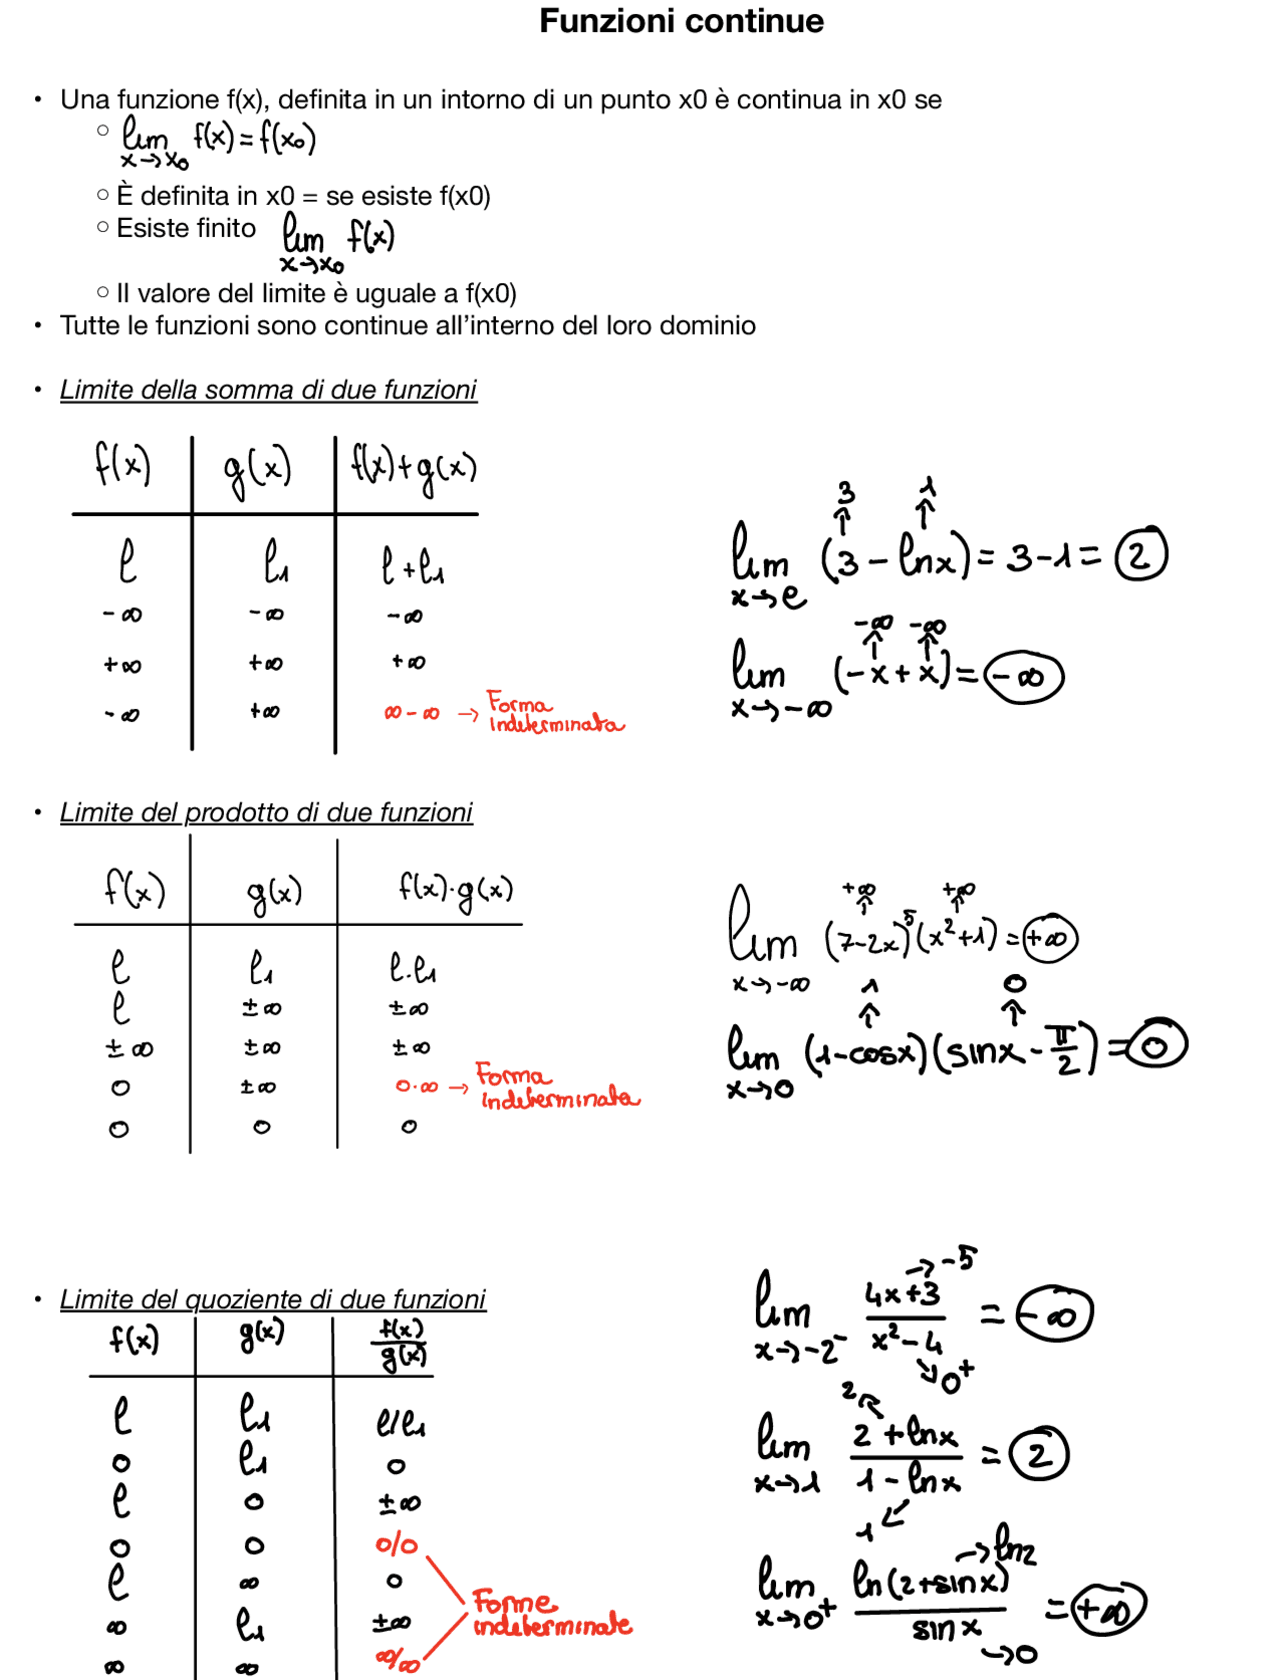 Funzioni continue
• Una funzione f(x), definita in un intorno di un punto x0 è continua in x0 se
○ lim x→x₀ f(x) = f(x₀)
○ È definita in x0 = se esiste f(x0)
○ Esiste finito lim x→x₀ f(x)
○ Il valore del limite è uguale a f(x0)
• Tutte le funzioni sono continue all'interno del loro dominio
• Limite della somma di due funzioni
f(x) | g(x) | f(x)+g(x)
ℓ | ℓ₁ | ℓ+ℓ₁
-∞ | -∞ | -∞
+∞ | +∞ | +∞
-∞ | +∞ | ∞-∞ → Forma indeterminata
3 1
lim x→e (3 - lnx) = 3-1 = 2
-∞ -∞
lim x→-∞ (-x+x) = -∞
• Limite del prodotto di due funzioni
f(x) | g(x) | f(x)·g(x)
ℓ | ℓ₁ | ℓ·ℓ₁
ℓ | ±∞ | ±∞
±∞ | ±∞ | ±∞
0 | ±∞ | 0·∞ → Forma indeterminata
0 | 0 | 0
+∞ +∞
lim x→-∞ (7-2x)⁵(x²+1) = +∞
1 0
lim x→0 (1-cosx)(sinx-π/2) = 0
• Limite del quoziente di due funzioni
f(x) | g(x) | f(x)/g(x)
ℓ | ℓ₁ | ℓ/ℓ₁
0 | ℓ₁ | 0
ℓ | 0 | ±∞
0 | 0 | 0/0
ℓ | ∞ | 0
∞ | ℓ₁ | ±∞
∞ | ∞ | ∞/∞
Forme indeterminate
→ -5
lim x→-2⁻ (4x+3)/(x²-4) = -∞
↘ 0⁺
2 ↖
lim x→1 (2+lnx)/(1-lnx) = 2
1 ↙
→ ln2
lim x→0⁺ ln(2+sinx)/sinx = +∞
→ 0